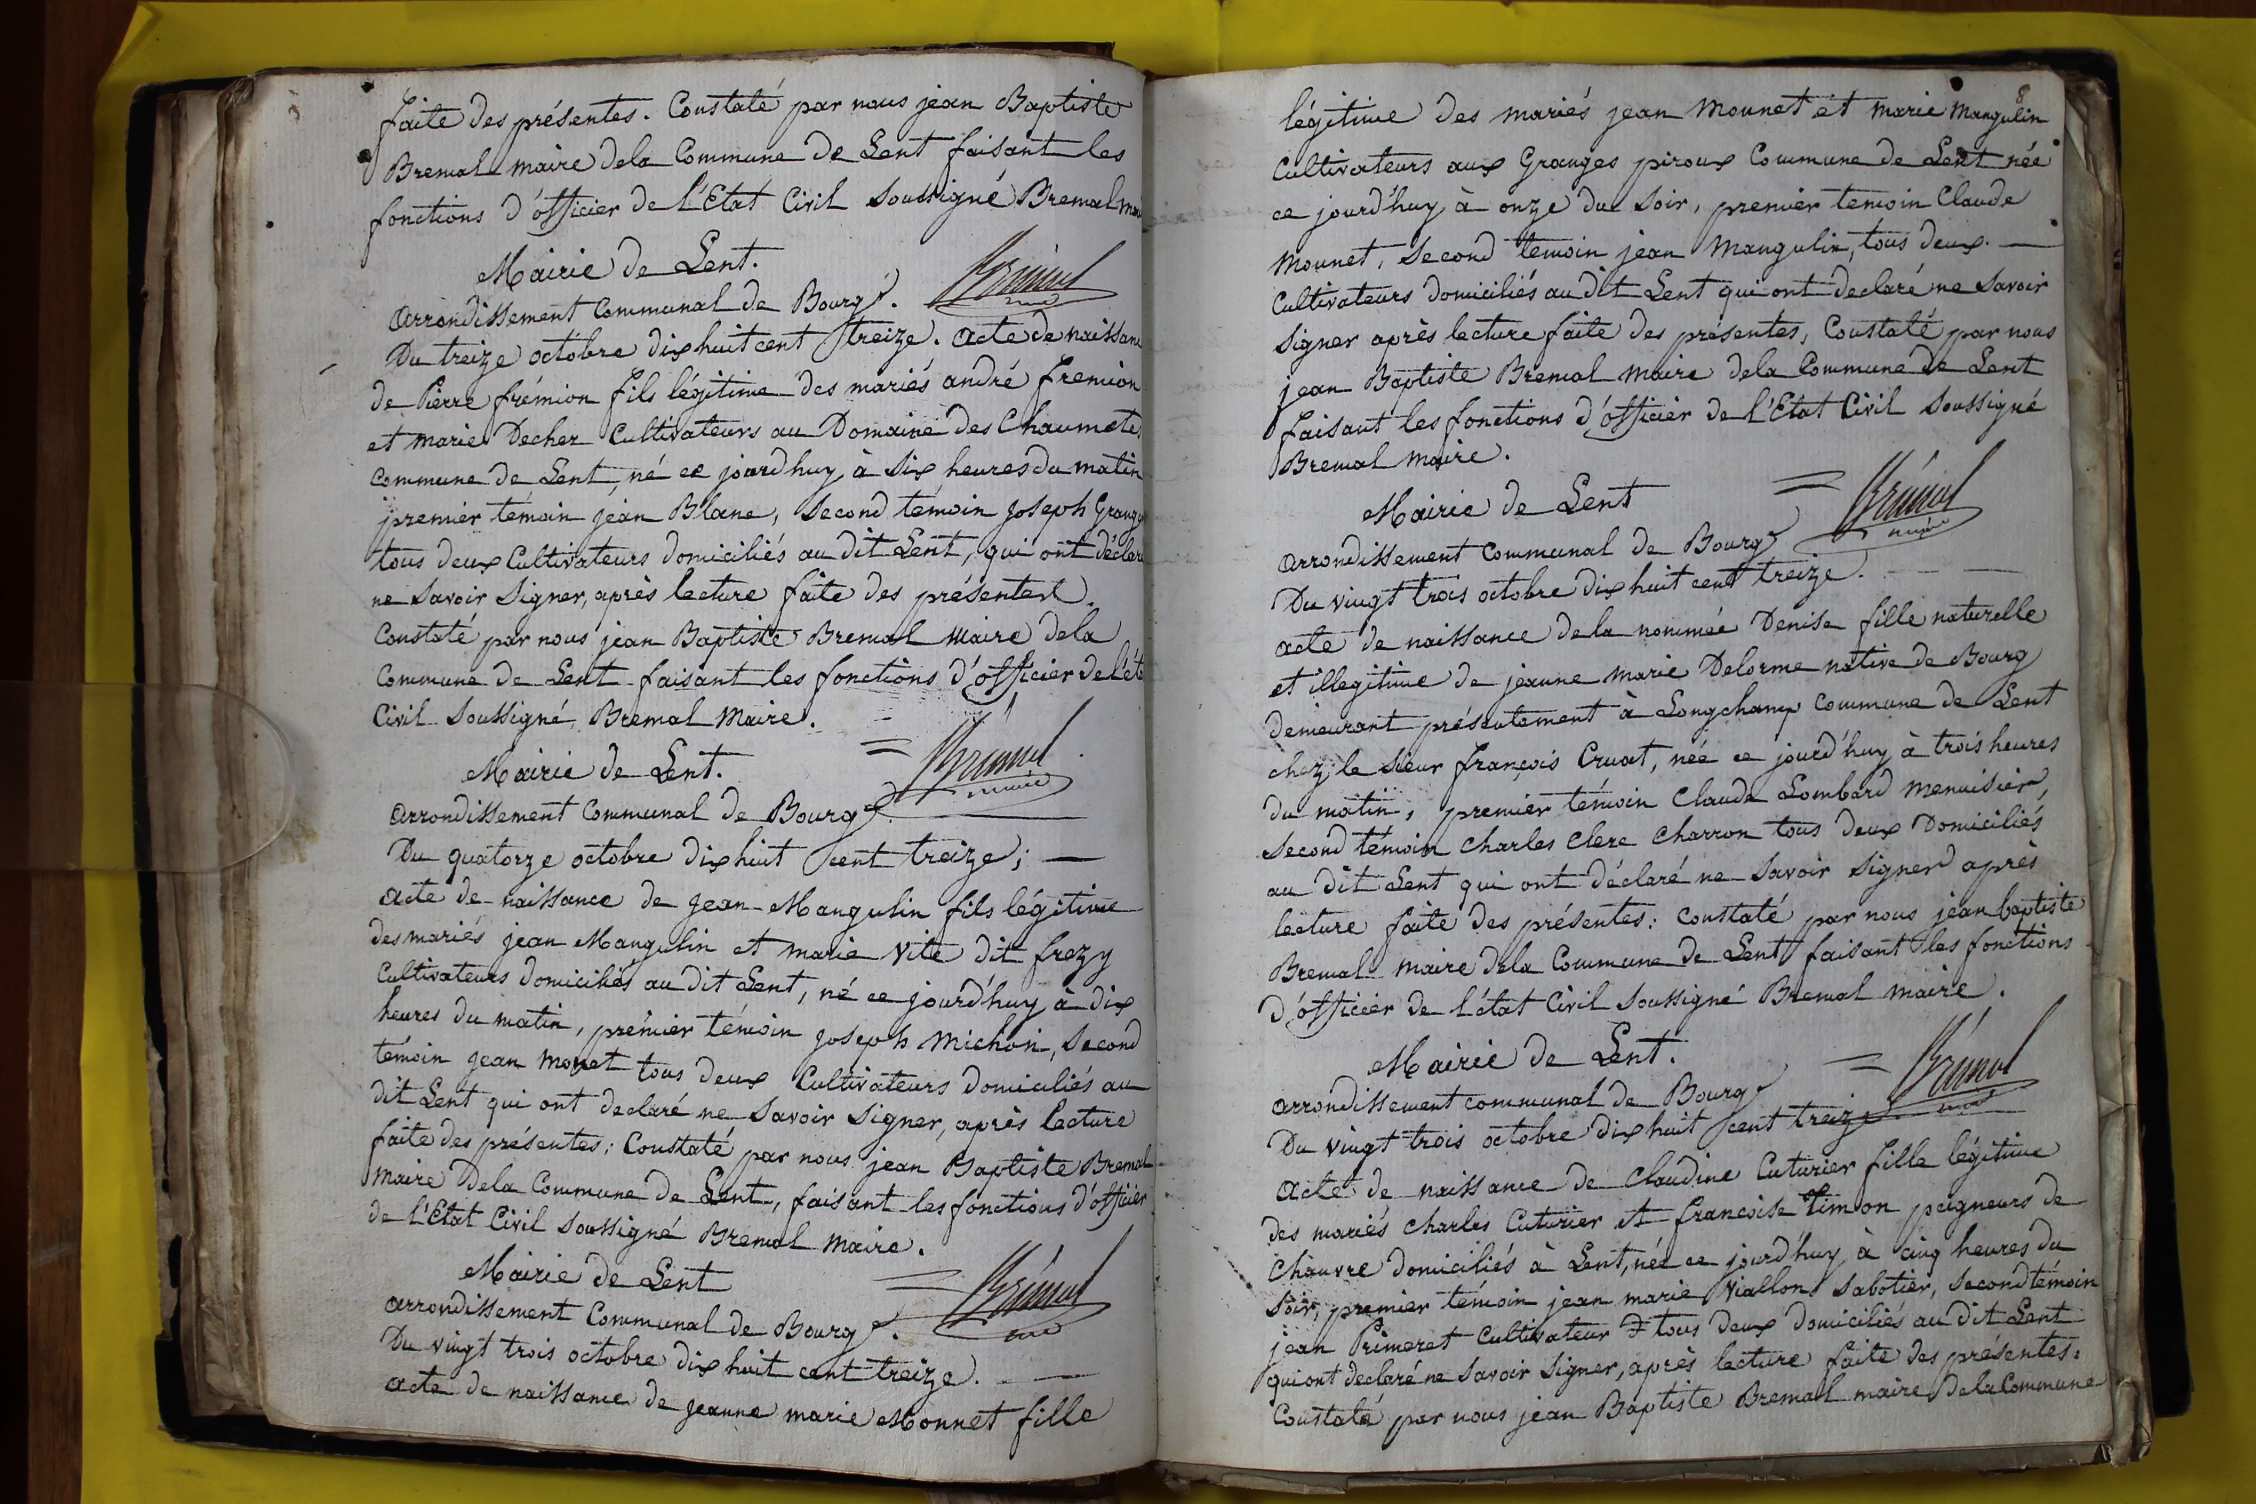 faite des présentes. Constaté par nous jean Baptiste
Bremal maire dela Commune de Lent faisant les
fonctions d'officier de l'Etat Civil Soussigné Bremal mai
Mairie de Lent.
arrondissement Communal de Bourg.
Bremal
maire
Du treize octobre dix huit cent treize. acte de naissanc
de Pierre frémion fils légitime des mariés andré fremion
et marie Decher Cultivateurs au Domaine des Chaumete
Commune de Lent, né ce jourd'huy à six heures du matin
premier témoin jean Blanc, second témoin joseph Grangy
tous deux Cultivateurs domiciliés au dit Lent, qui ont déclaré
ne Savoir Signer, après lecture faite des présentes.
Constaté par nous jean Baptiste Bremal maire dela
Commune de Lent faisant les fonctions d'officier de l'ét
Civil Soussigné Bremal Maire.
Bremal
maire
Mairie de Lent.
arrondissement Communal de Bourg.
Du quatorze octobre dix huit cent treize;
acte de naissance de Jean Mangulin fils légitime
des mariés jean Mangulin et marie Vite dit frezy
Cultivateurs domiciliés au dit Lent, né ce jourd'huy à dix
heures du matin, premier témoin joseph Michon, second
témoin jean monet tous deux Cultivateurs domiciliés au
dit Lent qui ont declaré ne Savoir Signer, après lecture
faite des présentes; Constaté par nous jean Baptiste Bremal
Maire dela Commune de Lent, faisant les fonctions d'officier
de l'Etat Civil Soussigné Bremal Maire.
Mairie de Lent
Bremal
maire
arrondissement Communal de Bourg.
Du vingt trois octobre dix huit cent treize.
acte de naissance de jeanne marie Monnet fille
8
légitime des mariés jean Mounet et marie Mangulin
Cultivateurs aux Granges piroux Commune de Lent née
ce jourd'huy à onze du soir, premier temoin Claude
Mounet, Second temoin jean Mangulin, tous deux
Cultivateurs domiciliés au dit Lent qui ont declaré ne Savoir
Signer après lecture faite des présentes, Constaté par nous
jean Baptiste Bremal Maire dela Commune de Lent
faisant les fonctions d'officier de l'Etat Civil Soussigné
Bremal Maire.
Mairie de Lent
Bremal
maire
arrondissement Communal de Bourg
Du vingt trois octobre dix huit cent treize.
acte de naissance dela nommée Denise fille naturelle
et illegitime de jeanne marie Delorme native de Bourg
demeurant présentement à Longchamp Commune de Lent
chez le Sieur françois Cruat, née ce jourd'huy à trois heures
du matin, premier témoin Claude Lombard Menuisier,
Second témoin Charles Clerc Charron tous deux Domiciliés
au dit Lent qui ont déclaré ne Savoir Signer après
lecture faite des présentes: Constaté par nous jean baptiste
Bremal maire dela Commune de Lent faisant les fonctions
d'officier de l'état Civil Soussigné Bremal maire.
Mairie de Lent.
Bremal
maire
arrondissement communal de Bourg
Du vingt trois octobre dix huit cent treize
acte de naissance de Claudine Cuturier fille légitime
des mariés Charles Cuturier et françoise Timon peigneurs de
Chanvre domiciliés à Lent, née ce jourd'huy à cinq heures du
Soir, premier témoin jean marie Viallon Sabotier, Second témoin
jean Primeret Cultivateur tous deux domiciliés au dit Lent
qui ont declaré ne Savoir Signer, après lecture faite des présentes:
Constaté par nous jean Baptiste Bremal maire dela Commune